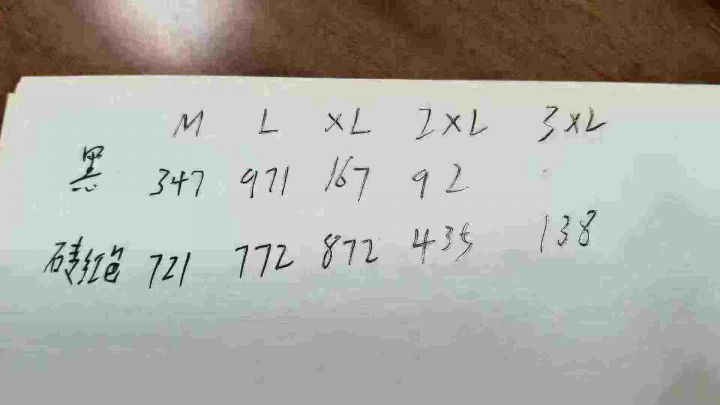 M L XL 2XL 3XL
黑 347 971 167 92
砖红色 721 772 872 435 138